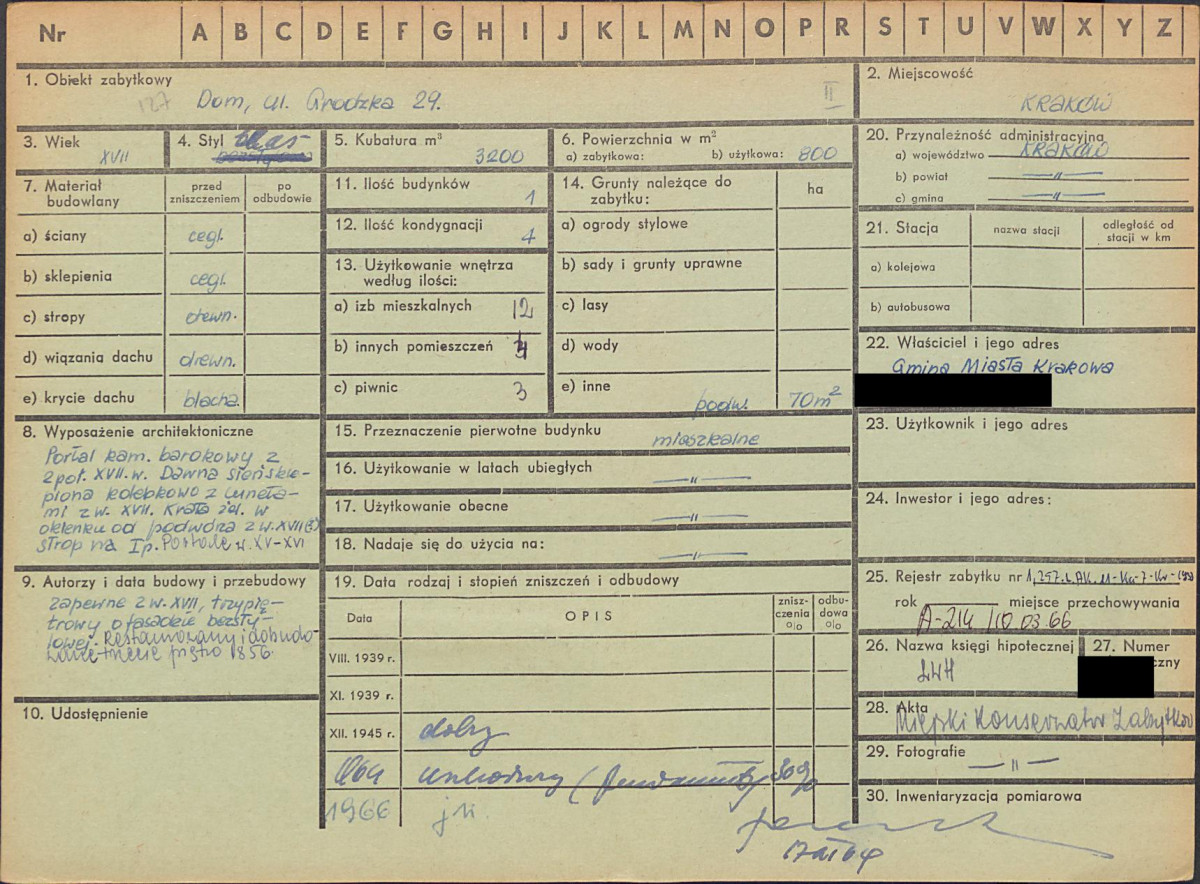 Nr A B C D E F G H I J K L M N O P R S T U V W X Y Z
1. Obiekt zabytkowy
127 Dom, ul. Grodzka 29. II
2. Miejscowość
KRAKÓW
3. Wiek
XVII
4. Styl klas
5. Kubatura m³
3200
6. Powierzchnia w m²
a) zabytkowa: b) użytkowa: 800
20. Przynależność administracyjna
a) województwo KRAKÓW
b) powiat —„—
c) gmina —„—
7. Materiał budowlany
przed zniszczeniem
po odbudowie
a) ściany cegl.
b) sklepienia cegl.
c) stropy drewn.
d) wiązania dachu drewn.
e) krycie dachu blacha.
11. Ilość budynków 1
12. Ilość kondygnacji 4
13. Użytkowanie wnętrza
według ilości:
a) izb mieszkalnych 12
b) innych pomieszczeń
c) piwnic 3
14. Grunty należące do
zabytku:
ha
a) ogrody stylowe
b) sady i grunty uprawne
c) lasy
d) wody
e) inne podw. 70m²
21. Stacja
nazwa stacji
odległość od
stacji w km
a) kolejowa
b) autobusowa
22. Właściciel i jego adres
Gmina Miasta Krakowa
8. Wyposażenie architektoniczne
Portal kam. barokowy z
2 poł. XVII.w. Dawna sień skle-
piona kolebkowo z luneta-
mi z w. XVII. Krata żel. w
okienku od podwórza z w. XVII(?)
strop na I p. Portale w. XV-XVI
15. Przeznaczenie pierwotne budynku mieszkalne
16. Użytkowanie w latach ubiegłych —„—
17. Użytkowanie obecne —„—
18. Nadaje się do użycia na: —„—
23. Użytkownik i jego adres
24. Inwestor i jego adres:
9. Autorzy i data budowy i przebudowy
zapewne z w. XVII, trzypię-
trowy o fasadzie bezsty-
lowej. Restaurowany i dobudo-
wane trzecie piętro 1856.
10. Udostępnienie
19. Data rodzaj i stopień zniszczeń i odbudowy
Data
OPIS
znisz-
czenia
%
odbu-
dowa
%
VIII. 1939 r.
XI. 1939 r.
XII. 1945 r. dobry
1964
1966 j.w.
25. Rejestr zabytku nr
rok miejsce przechowywania
A-214 10.03.66
26. Nazwa księgi hipotecznej
LWH
27. Numer
czny
28. Akta
Miejski Konserwator Zabytków
29. Fotografie
—„—
30. Inwentaryzacja pomiarowa